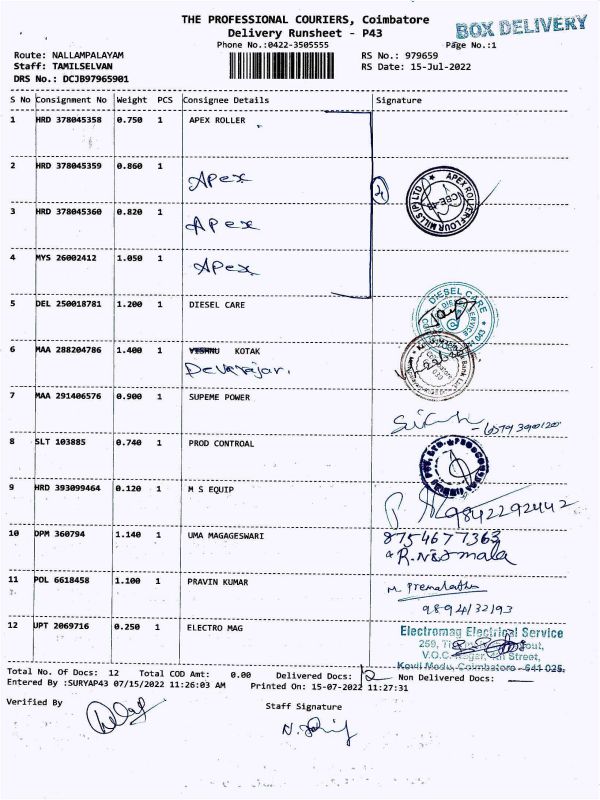 THE PROFESSIONAL COURIERS, Coimbatore
BOX DELIVERY
Delivery Runsheet - P43
Phone No.:0422-3505555
Page No.:1
Route: NALLAMPALAYAM
RS No.: 979659
Staff: TAMILSELVAN
RS Date: 15-Jul-2022
DRS No.: DCJB97965901
S No Consignment No Weight PCS Consignee Details Signature
1 HRD 378045358 0.750 1 APEX ROLLER
2 HRD 378045359 0.860 1 Apex
APEX ROLLER FLOUR MILLS (P) LTD
3 HRD 378045360 0.820 1 Apex
4 MYS 26002412 1.050 1 Apex
5 DEL 250018781 1.200 1 DIESEL CARE
DIESEL CARE
6 MAA 288204786 1.400 1 VISHNU KOTAK
Devarajan.
7 MAA 291406576 0.900 1 SUPEME POWER
8 SLT 103885 0.740 1 PROD CONTROAL
9 HRD 393099464 0.120 1 M S EQUIP
9842292442
10 DPM 360794 1.140 1 UMA MAGAGESWARI
8754677363
R. Nirmala
11 POL 6618458 1.100 1 PRAVIN KUMAR
M. Premalatha
9894132193
12 UPT 2069716 0.250 1 ELECTRO MAG
Electromag Electrical Service
259,
V.O.C. Nagar, 4th Street,
Kovil Medu, Coimbatore - 641 025.
Total No. Of Docs: 12 Total COD Amt: 0.00 Delivered Docs: 12 Non Delivered Docs:
Entered By :SURYAP43 07/15/2022 11:26:03 AM Printed On: 15-07-2022 11:27:31
Verified By
Staff Signature